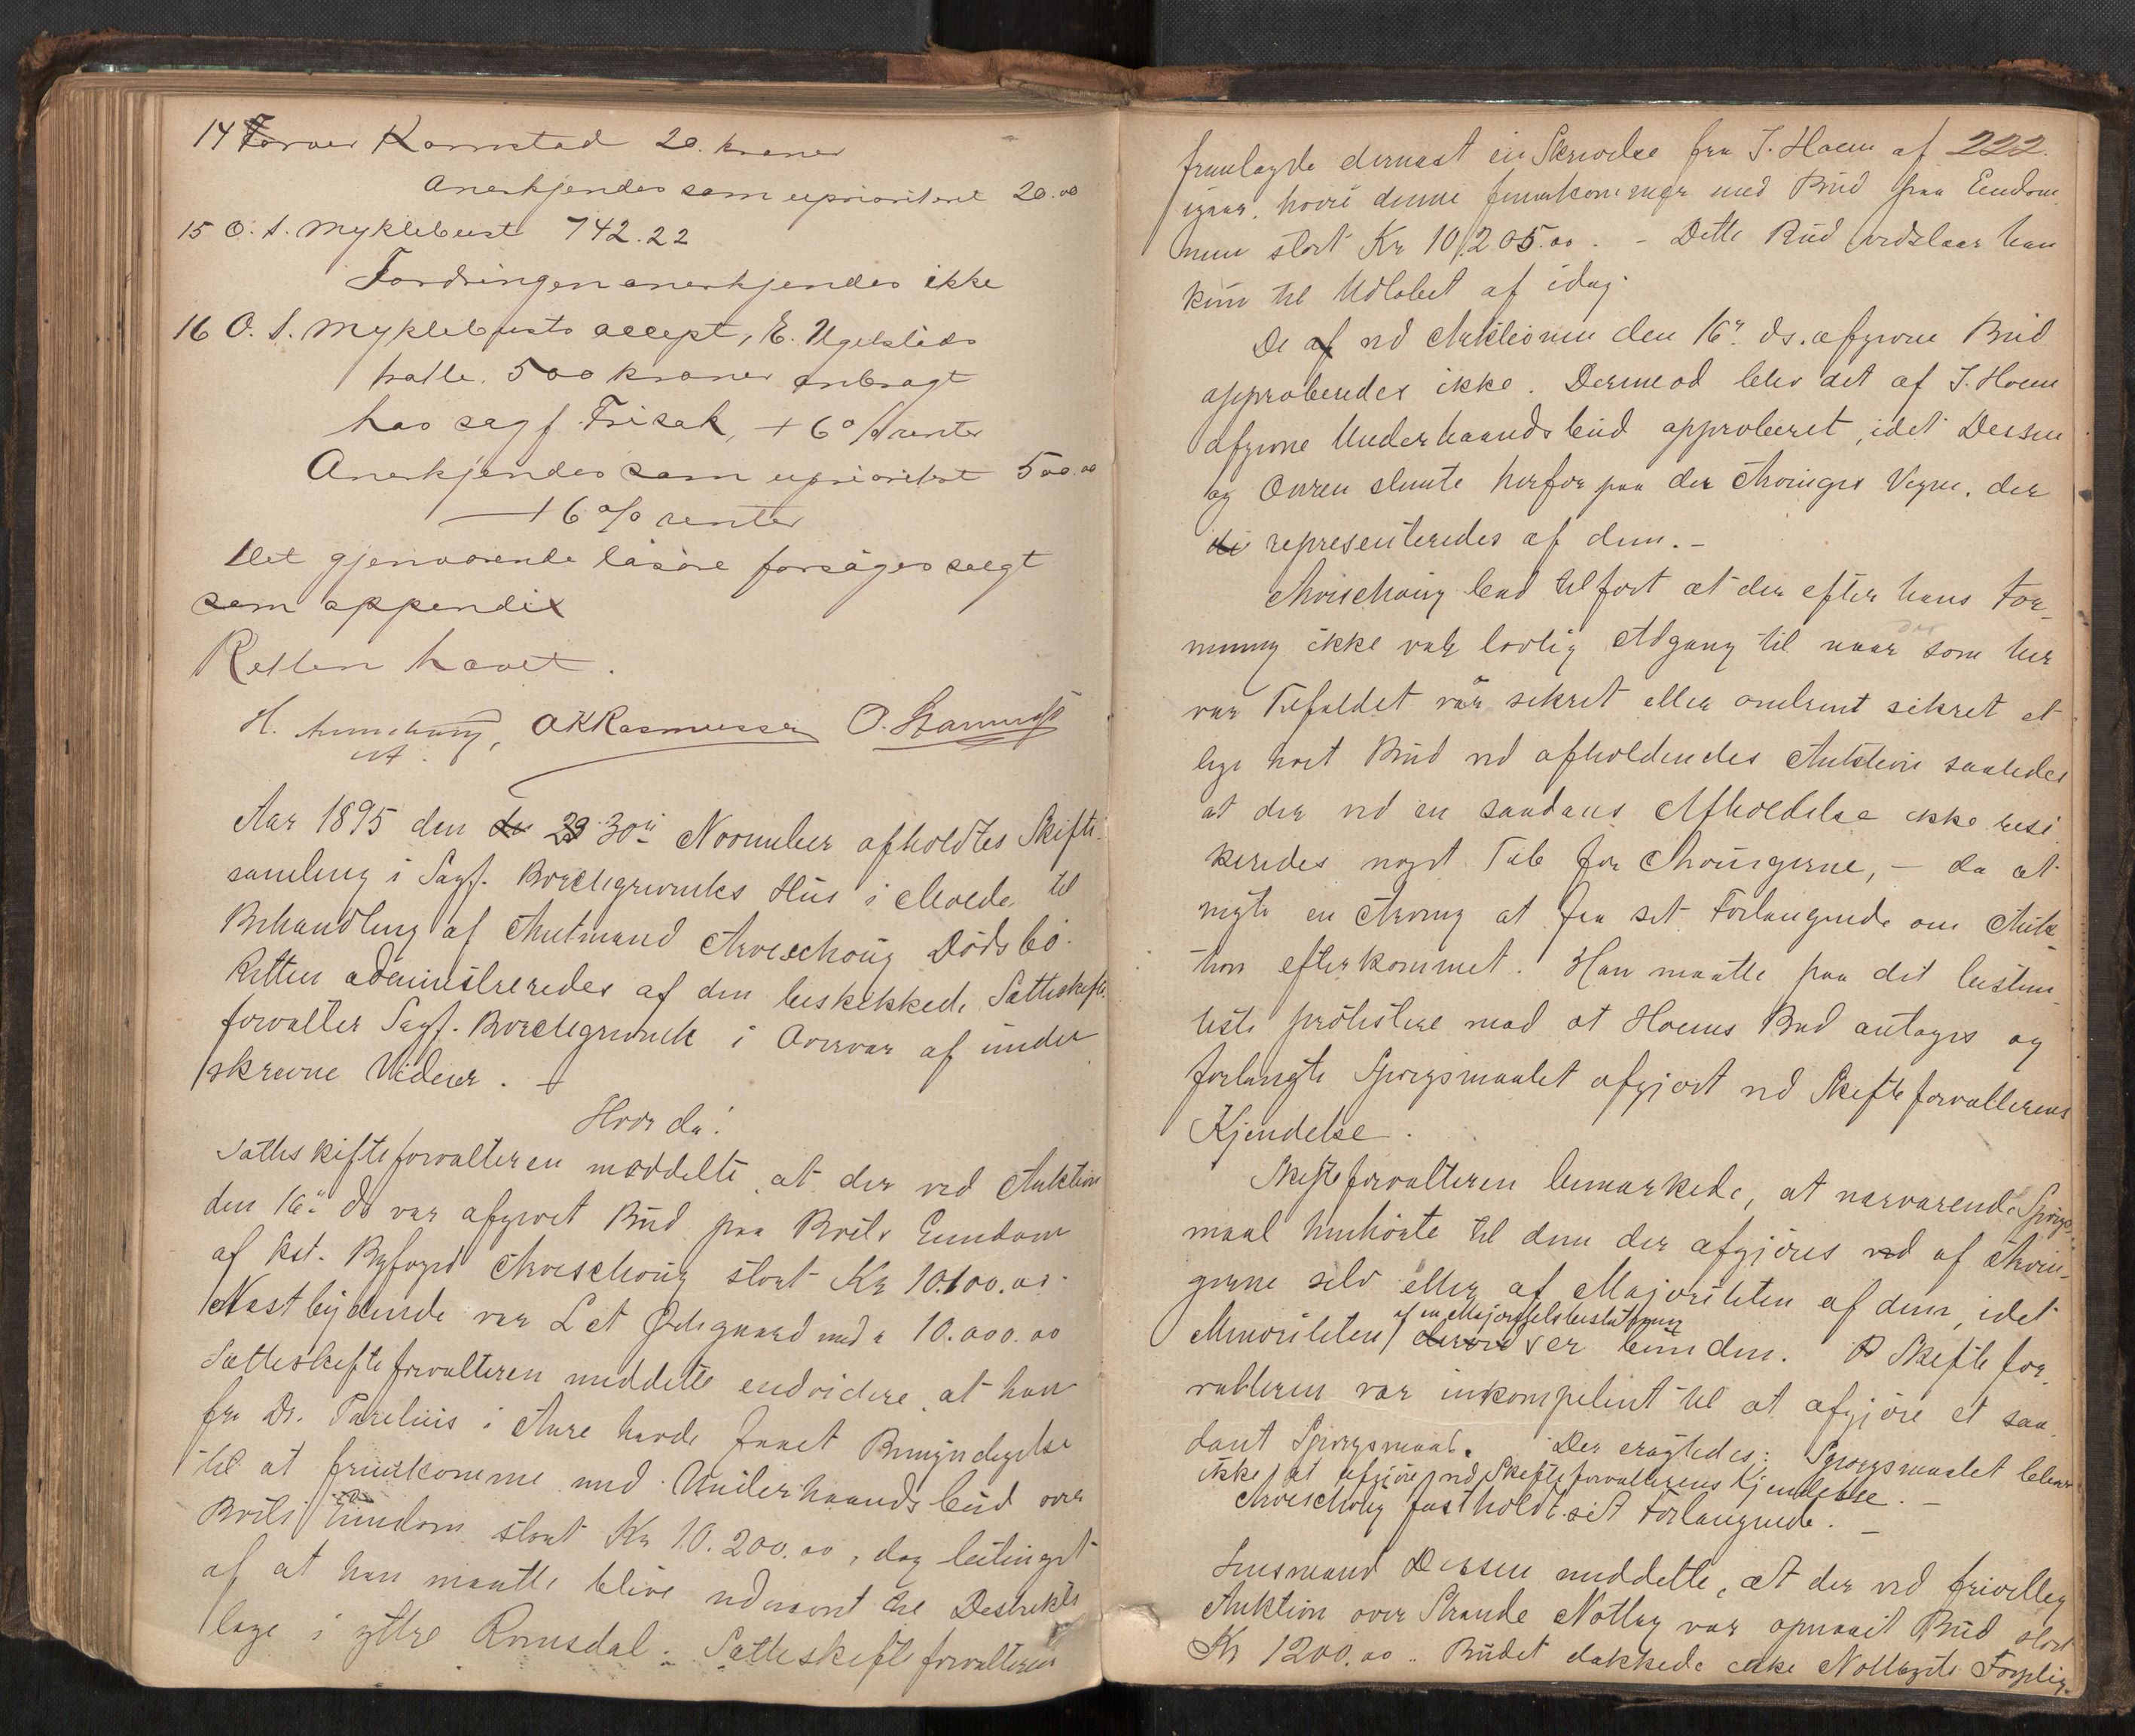 14 Farver Kornstad 20. kroner
Anerkjendes som uprioriteret 20.00
15 O. A. Myklebust 742.22
Fordringen anerkjendes ikke
16 O. A. Myklebusts accept, E. Ugelsleds
tratte. 500 kroner anbragt
hos sagf. Frisak, + 6 % renter
Anerkjendes som uprioritert 500.00
+ 6 % renter
Det gjenværende løsøre forsøges solgt
som appendix
Retten hævet.
H. OKRasmussen O.
Aar 1895 den de 29 30te November afholdtes Skifte-
samling i Sagf. Borchgrevinks Hus i Molde til
Behandling af Amtmand Aveschoug Dødsbo.
Retten administreredes af den beskikkede Sætteskifte-
forvalter Sagf. Borchgrevinck i Overvær af under
skrevne Vidner. +
Hvor da:
Sætteskifteforvalteren meddelte, at der ved Auktion
den 16de ds var afgivet Bud paa Boets Eiendom
af kst. Byfoged Aveschoug stort Kr 10.100.00.
Næstbydende var L et Ødegaard med " 10.000.00
Sætteskifteforvalteren meddelte endvidere, at han
fra Dr. Parelius i Aure havde faaet Bemyndigelse
til at fremkomme med Underhaandsbud over
Boets Eiendom stort Kr 10.200.00, dog betinget
af at han maatte blive udnævnt til Distrikts
læge i ytre Romsdal. Sætteskifteforvalteren
fremlagde dernæst en Skrivelse fra J. Hoem af 222.
igaar, hvori denne fremkommer med Bud paa Eiendom
men stort Kr 10,205.00. - Dette Bud vedslaar han
kun til Udløbet af idag.
De af ved Auktionen den 16de ds. afgivne Bud
approberedes ikke. Derimod blev det af J. Hoem
afgivne Underhaandsbud approberet, idet Dessen
og Owren stemte herfor paa de Arvinges Vegne, der
de representeredes af dem. -
Aveschoug bad tilført at der efter hans For-
mening ikke var lovlig Adgang til naar som her
var Tilfældet var sikret eller omtrent sikret et
lige høit Bud ved afholdendes Auktion saaledes
at der ved en saadans Afholdelse ikke risi
keredes noget Tab for Arvingerne, - da at
nægte en Arving at faa sit Forlangende om Auk-
tion efterkommet. Han maatte paa det bestem-
teste protestere mod at Hoems Bud antages og
forlangte Spørgsmaalet afgjort ved Skifteforvalterens
Kjendelse.
Skifteforvalteren bemærkede, at nærværende Spørgs-
maal henhørte til dem der afgjøres ved af Arvin-
gerne selv eller af Majoriteten af dem, idet
af en Majoritetsbeslutning
Minoriteten derved er bunden. Skiftefor-
valteren var inkompetent til at afgjøre et saa-
dant Spørgsmaal. Der eragtedes: Spørgsmaalet bliver
ikke at afgjøre ved Skifteforvalterens Kjendelse. -
Aveschoug fastholdt sit Forlangende. -
Lensmand Dessen meddelte, at der ved frivillig
Auktion over Strande Notlag var opnaaet Bud stort
Kr 1200.00. Budet dækkede ikke Notlagets Forplig-